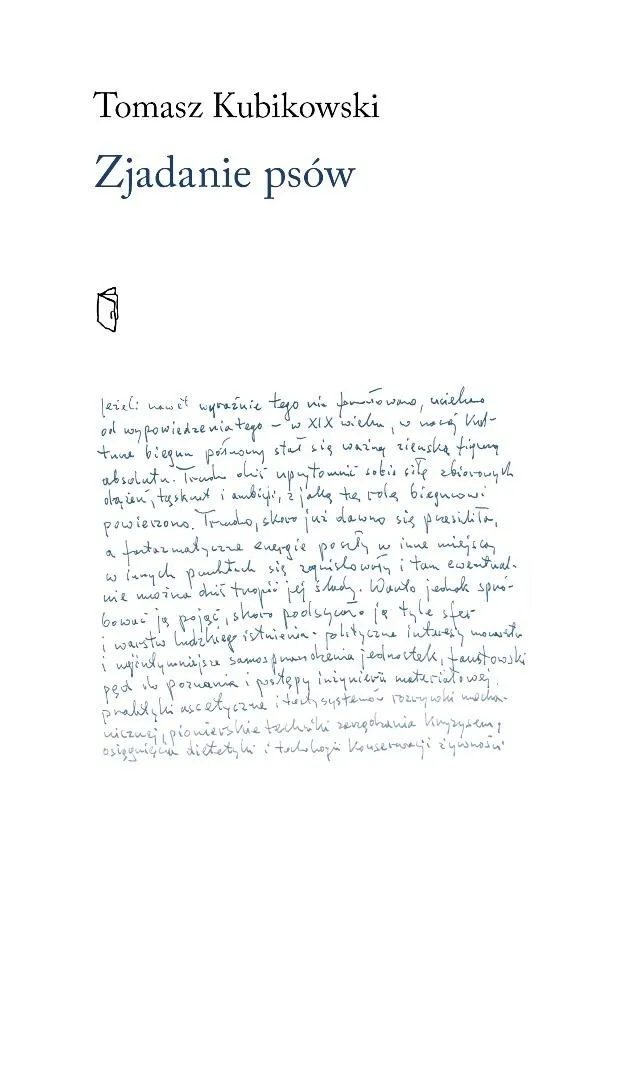 Tomasz Kubikowski
Zjadanie psów
Jeżeli nawet wyraźnie tego nie
od wypowiedzenia tego – w XIX wieku, w naszej kul-
turze biegun północny stał się ważną ziemską figurą
absolutu. Trudno dziś uprzytomnić sobie siłę zbiorowych
dążeń, tęsknot i ambicji, z jaką tę rolę biegunowi
powierzono. Trudno, skoro już dawno się przesiliła,
a fantazmatyczne energie poszły w inne miejsca,
w innych punktach się i tam ewentual-
nie można dziś tropić jej ślady. Warto jednak spró-
bować ją pojąć, skoro podsycało ją tyle sfer
i warstw ludzkiego istnienia: polityczne interesy mocarstw
i najintymniejsze samosprawdzenia jednostek, faustowski
pęd do poznania i postępy inżynierii materiałowej,
praktyki ascetyczne i rozrywki mecha-
nicznej, pionierskie techniki zarządzania kryzysem,
osiągnięcia dietetyki i technologii konserwacji żywności